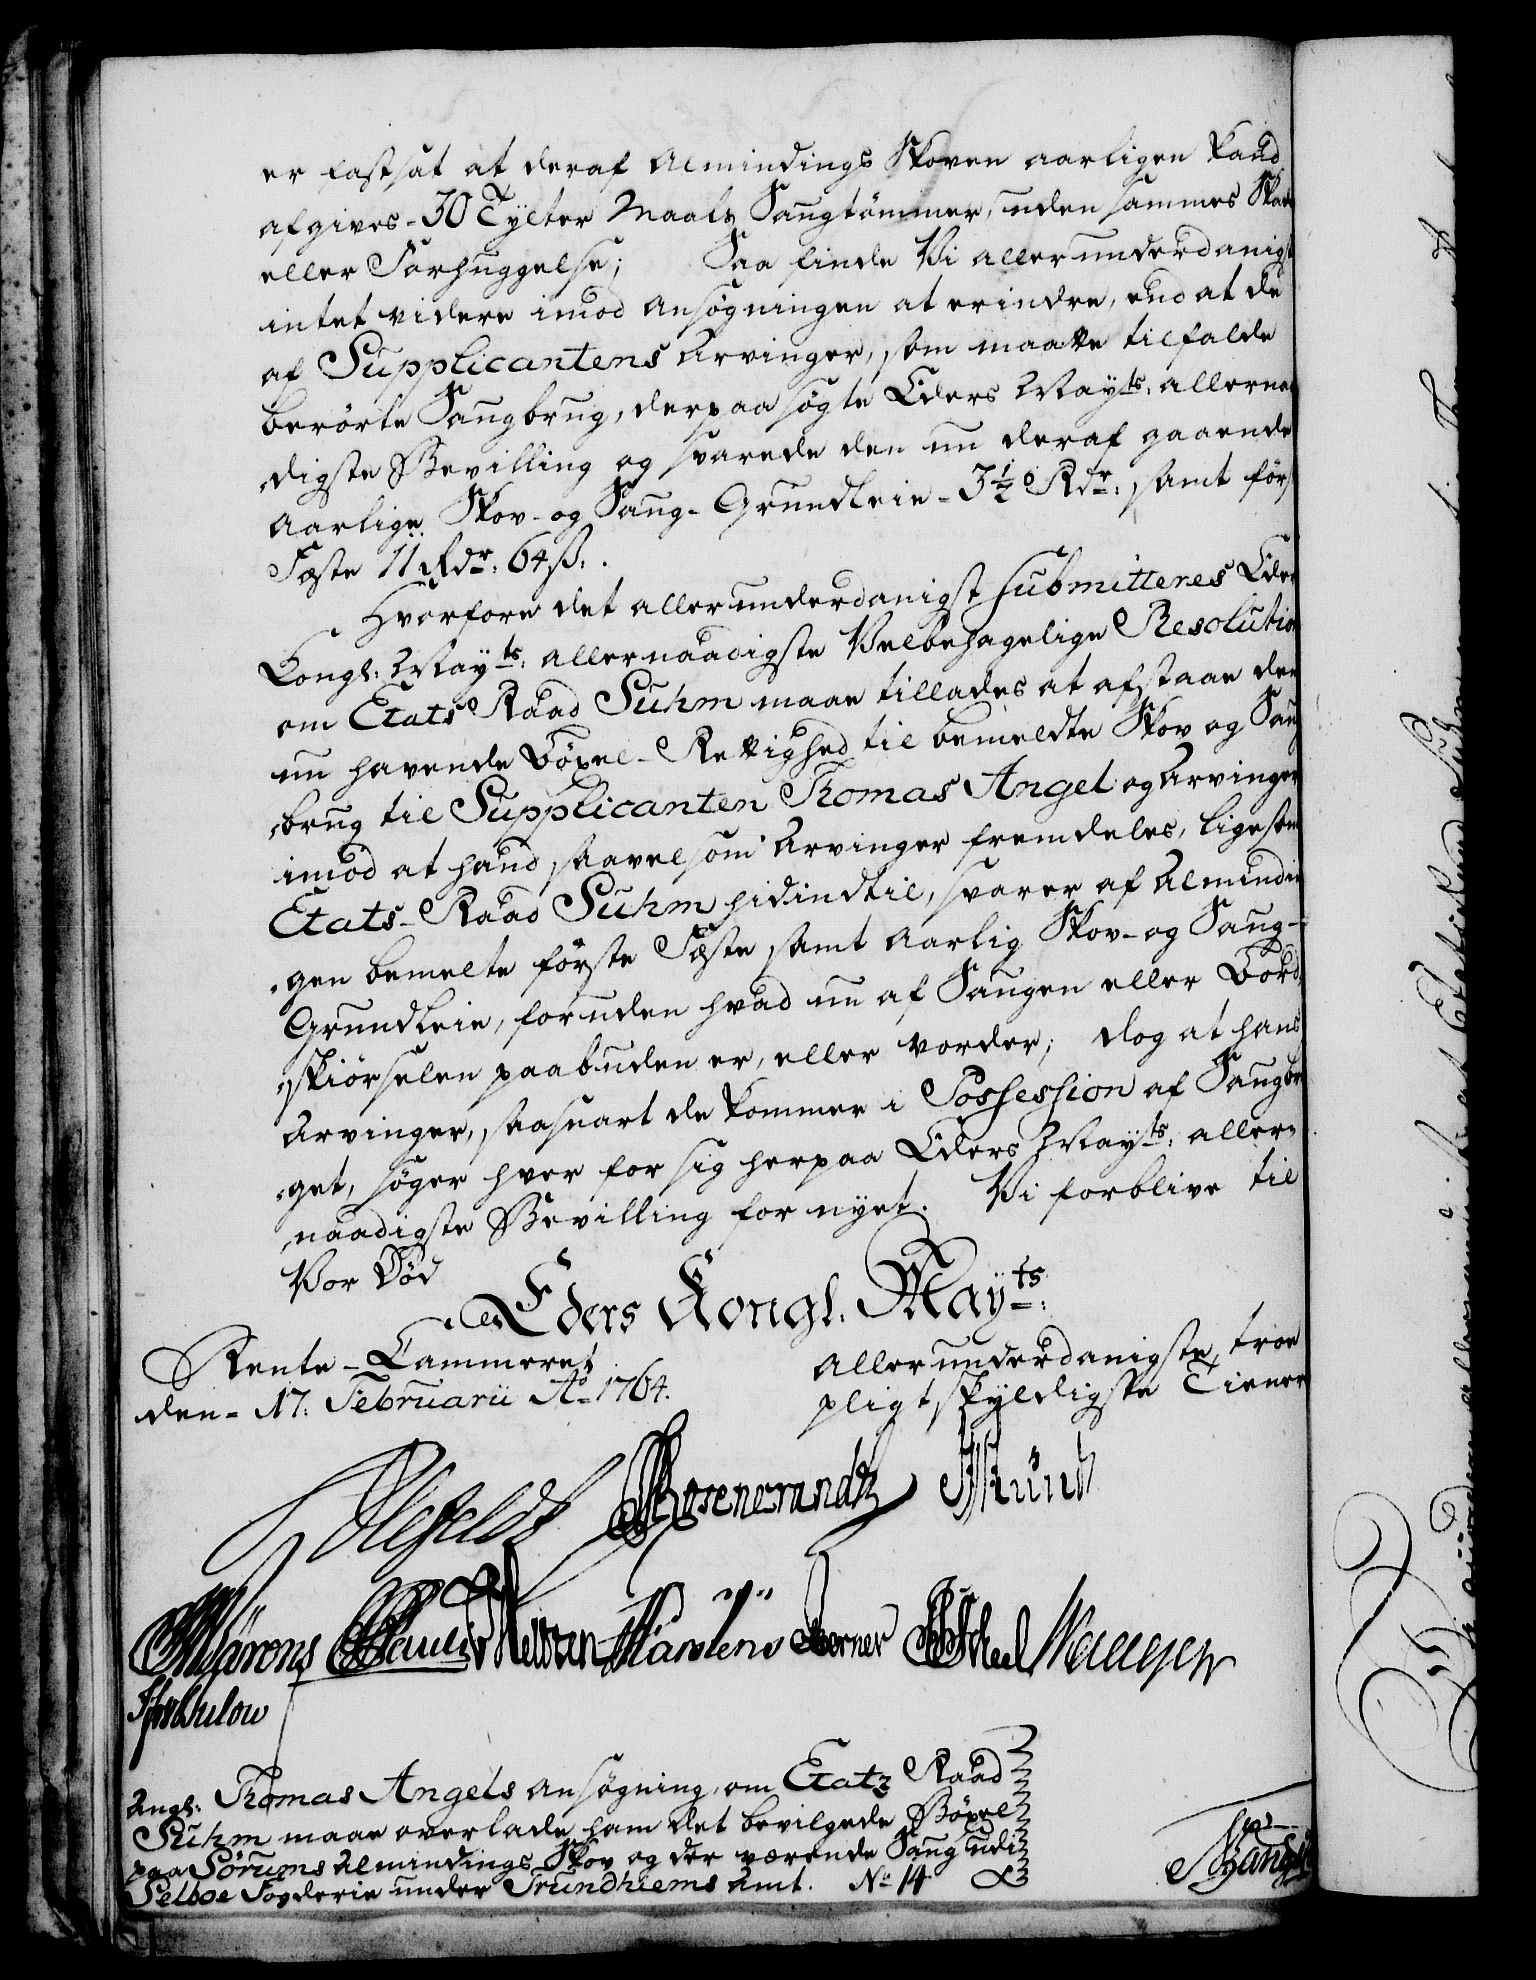 er fastsat at deraf Almindings Skoven aarligen kand
afgives - 30 Tylter Maalz Saugtömmer, uden sammes Skade
eller Forhuggelse; Saa finde Vi allerunderdanigst
intet videre imod Ansøgningen at erindre, end at de
af Supplicantens Arvinger, som maatte tilfalde
berörte Saugbrug, derpaa søgte Eders Mayts: allernaa-
digste Bevilling og svarede den nu deraf gaaende
Aarlige Skov- og Saug-Grundleie - 3½ Rdr: samt første
Fæste 11 Rdr: 64 ß: .
Hvorfore det allerunderdanigst submitteres Eders
Kongl: Mayts: allernaadigste Velbehagelige Resolution
om Etats Raad Suhm maae tillades at afstaae den
nu havende Böxel-Rettighed til bemeldte Skov og Saug-
brug til Supplicanten Thomas Angel og Arvinger
imod at hand saavelsom Arvinger fremdeles, ligesom
Etats-Raad Suhm hidindtil, svarer af Almindin-
gen bemelte første Fæste samt aarlig Skov- og Saug-
Grundleie, foruden hvad nu af Saugen eller Bord-
skiörselen paabuden er, eller vorder; dog at hans
Arvinger, saasnart de kommer i Possession af Saugbru-
get, søger hver for sig herpaa Eders Mayts: aller-
naadigste Bevilling for nyet. Vi forblive til
Vor Död
Eders Kongl. Mayts:
Rente-Cammeret
den 17: Februarii Ao 1764.
allerunderdanigste, troe
pligtskyldigste Tienere
Ahlefeldt Rosencrandtz Münch
Pauli Martens Berner Scheel
Bülow
Angl: Thomas Angels Ansøgning, om Etatz Raad
Suhm maae overlade ham det bevilgede Böxel
paa Sörums Almindings Skov og der værende Saug udi
Selboe Fogderie under Trundhiems Amt. No 14